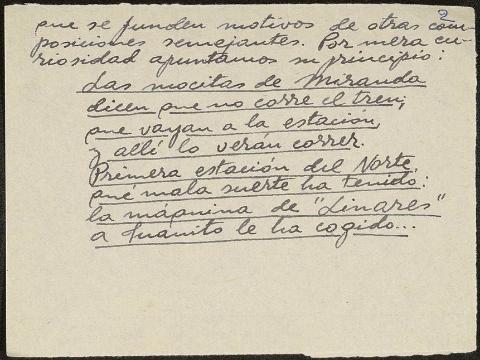 2
que se funden motivos de otras com-
posiciones semejantes. Por mera cu-
riosidad apuntamos su principio:
Las mocitas de Miranda
dicen que no corre el tren;
que vayan a la estación,
y allí lo verán correr.
Primera estación del Norte,
qué mala suerte ha tenido:
la máquina de "Linares"
a Juanito le ha cogido...